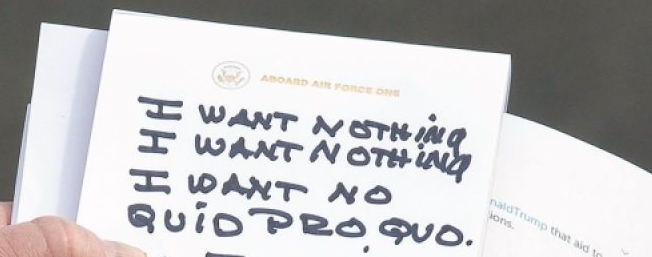 ABOARD AIR FORCE ONE
I WANT NOTHING
I WANT NOTHING
I WANT NO
QUID PRO QUO.
naldTrump that aid to
ions.